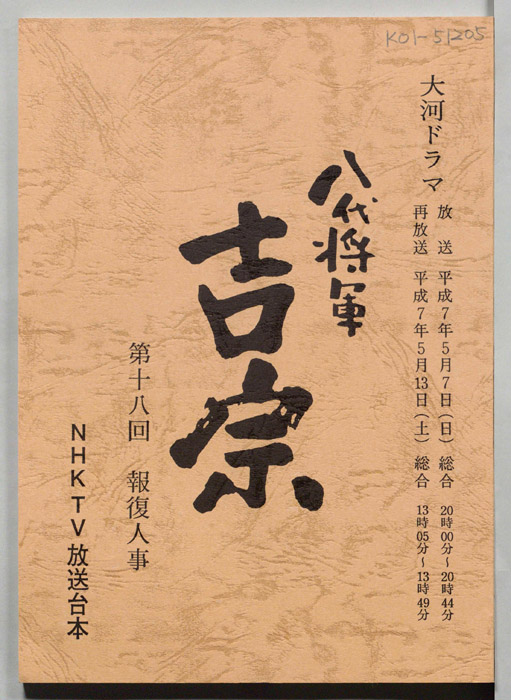 K01-51205
大河ドラマ
放送 平成7年5月7日(日) 総合 20時00分~20時44分
再放送 平成7年5月13日(土) 総合 13時05分~13時49分
八代将軍
吉宗
第十八回 報復人事
NHK TV 放送台本